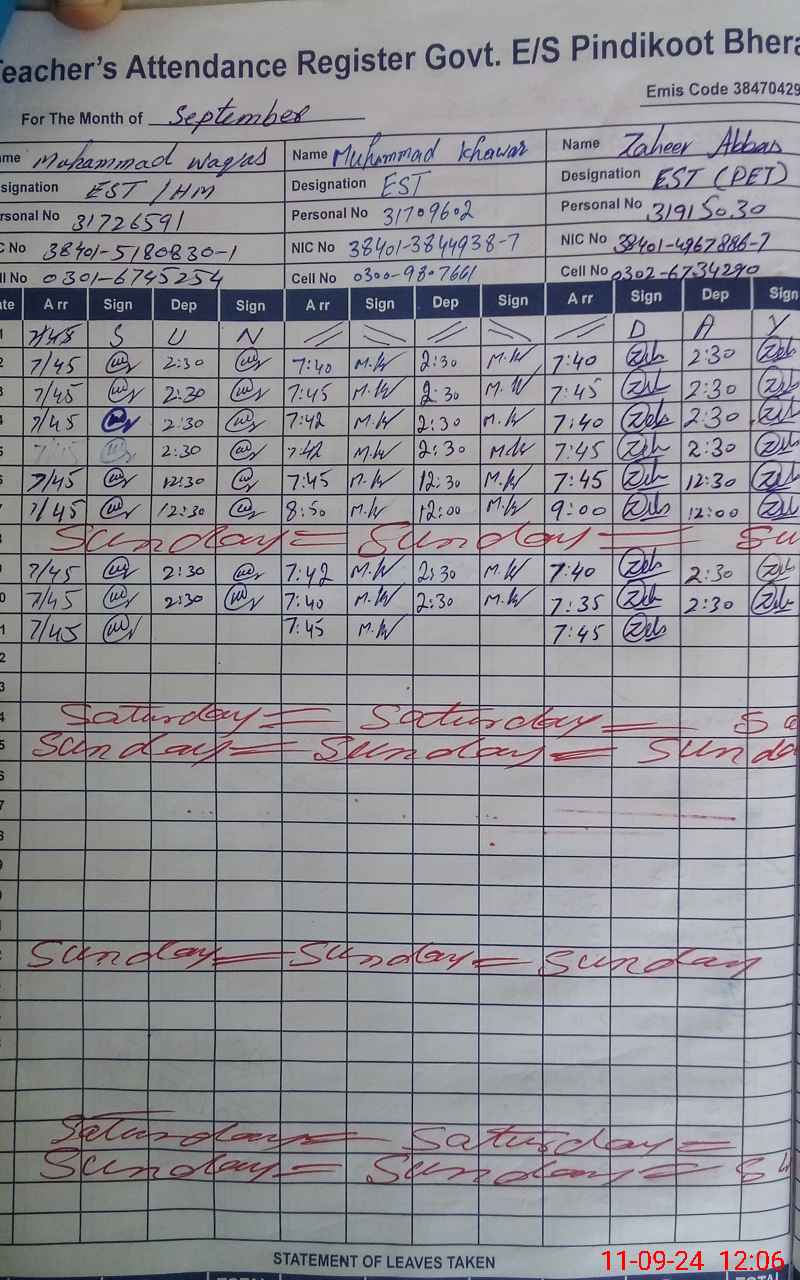 Teacher's Attendance Register Govt. E/S Pindikoot Bhera
Emis Code 38470429
For The Month of September
ame Muhammad Waqas Name Muhammad Khawar Name Zaheer Abbas
signation EST/HM Designation EST Designation EST (PET)
rsonal No 31726591 Personal No 31709602 Personal No 31915030
C No 38401-5180830-1 NIC No 38401-3844938-7 NIC No 38401-4967886-7
ll No 0301-6745254 Cell No 0300-9807661 Cell No 0302-6734290
ate A rr Sign Dep Sign A rr Sign Dep Sign A rr Sign Dep Sign
1 7/45 S U N D A Y
2 7/45 2:30 7:40 M.W 2:30 M.W 7:40 2:30
3 7/45 2:30 7:45 M.W 2:30 M.W 7:45 2:30
4 7/45 2:30 7:42 M.W 2:30 M.W 7:40 2:30
5 7/45 2:30 7:42 M.W 2:30 M.W 7:45 2:30
6 7/45 12:30 7:45 M.W 12:30 M.W 7:45 12:30
7 7/45 12:30 8:50 M.W 12:00 M.W 9:00 12:00
8 Sunday = Sunday = Su
9 7/45 2:30 7:42 M.W 2:30 M.W 7:40 2:30
0 7/45 2:30 7:40 M.W 2:30 M.W 7:35 2:30
1 7/45 7:45 M.W 7:45
2
3
4 Saturday = Saturday = Sa
5 Sunday = Sunday = Sunda
6
7
8
9
Sunday = Sunday = Sunday
Saturday = Saturday =
Sunday = Sunday = Su
STATEMENT OF LEAVES TAKEN
11-09-24 12:06